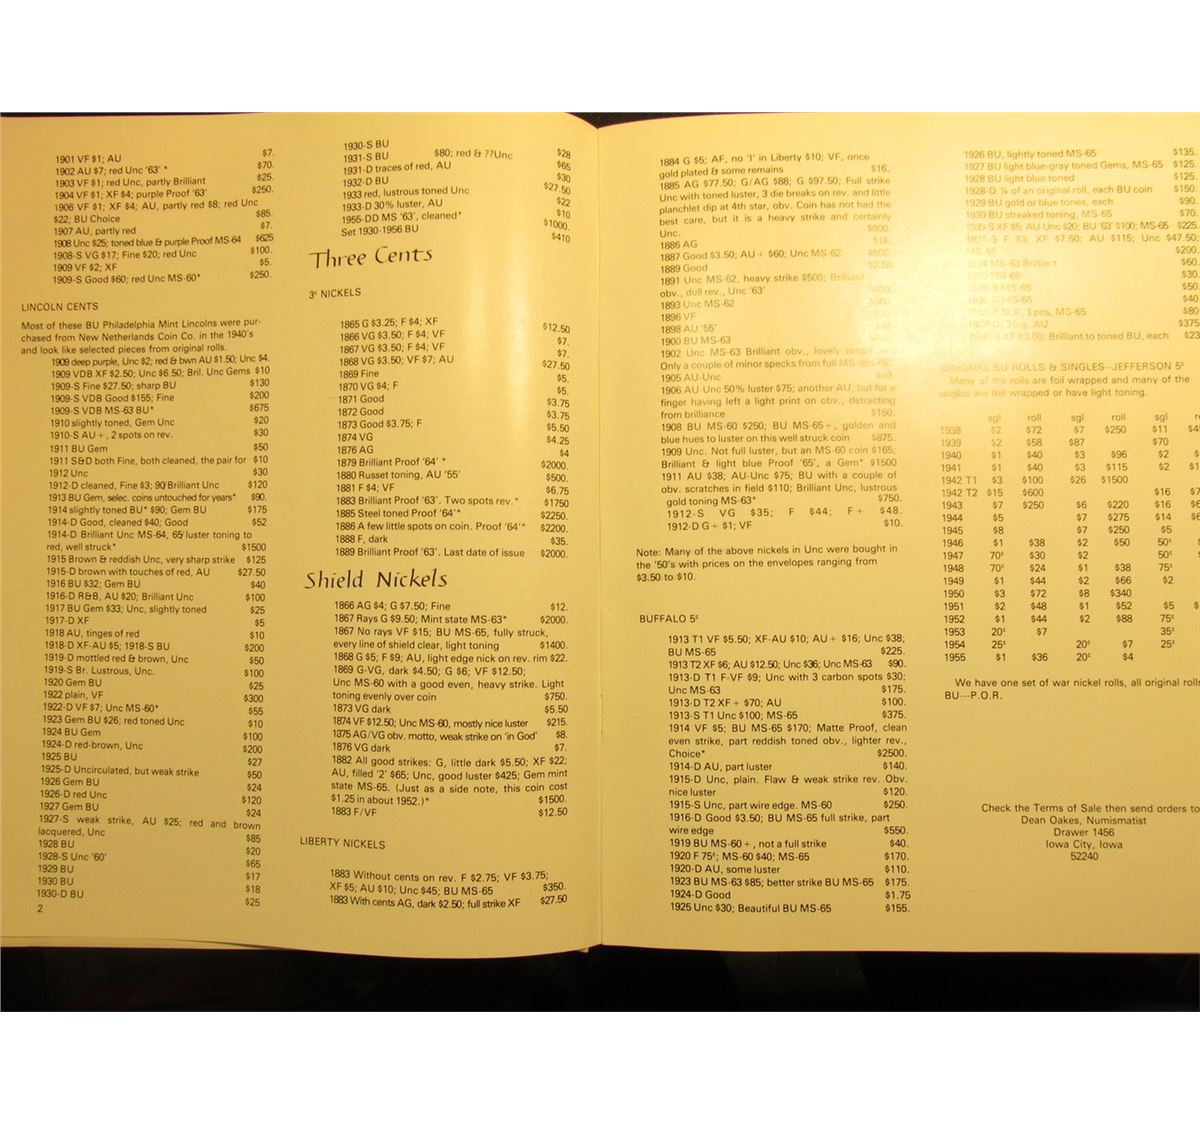 1901 VF $1; AU $7.
1902 AU $7; red Unc '63' * $70.
1903 VF $1; red Unc, partly Brilliant $25.
1904 VF $1; XF $4; purple Proof '63' $250.
1906 VF $1; XF $4; AU, partly red $8; red Unc
$22; BU Choice $85.
1907 AU, partly red $7.
1908 Unc $25; toned blue & purple Proof MS-64 $625
1908-S VG $17; Fine $20; red Unc $100.
1909 VF $2; XF $5.
1909-S Good $60; red Unc MS-60* $250.
LINCOLN CENTS
Most of these BU Philadelphia Mint Lincolns were pur-
chased from New Netherlands Coin Co. in the 1940's
and look like selected pieces from original rolls.
1909 deep purple, Unc $2; red & bwn AU $1.50; Unc $4.
1909 VDB XF $2.50; Unc $6.50; Bril. Unc Gems $10
1909-S Fine $27.50; sharp BU $130
1909-S VDB Good $155; Fine $200
1909-S VDB MS-63 BU* $675
1910 slightly toned, Gem Unc $20
1910-S AU+, 2 spots on rev. $30
1911 BU Gem $50
1911 S&D both Fine, both cleaned, the pair for $10
1912 Unc $30
1912-D cleaned, Fine $3; 90 Brilliant Unc $120
1913 BU Gem, selec. coins untouched for years* $90.
1914 slightly toned BU* $90; Gem BU $175
1914-D Good, cleaned $40; Good $52
1914-D Brilliant Unc MS-64, 65 luster toning to
red, well struck* $1500
1915 Brown & reddish Unc, very sharp strike $125
1915-D brown with touches of red, AU $27.50
1916 BU $32; Gem BU $40
1916-D R&B, AU $20; Brilliant Unc $100
1917 BU Gem $33; Unc, slightly toned $25
1917-D XF $5
1918 AU, tinges of red $10
1918-D XF-AU $5; 1918-S BU $200
1919-D mottled red & brown, Unc $50
1919-S Br. Lustrous, Unc. $100
1920 Gem BU $25
1922 plain, VF $300
1922-D VF $7; Unc MS-60* $55
1923 Gem BU $26; red toned Unc $10
1924 BU Gem $100
1924-D red-brown, Unc $200
1925 BU $27
1925-D Uncirculated, but weak strike $50
1926 Gem BU $24
1926-D red Unc $120
1927 Gem BU $24
1927-S weak strike, AU $25; red and brown
lacquered, Unc $85
1928 BU $20
1928-S Unc '60' $65
1929 BU $17
1930 BU $18
1930-D BU $25
2
1930-S BU $28
1931-S BU $80; red & ??Unc $65
1931-D traces of red, AU $30
1932-D BU $27.50
1933 red, lustrous toned Unc $22
1933-D 30% luster, AU $10
1955-DD MS '63', cleaned* $1000.
Set 1930-1956 BU $410
Three Cents
3¢ NICKELS
1865 G $3.25; F $4; XF $12.50
1866 VG $3.50; F $4; VF $7.
1867 VG $3.50; F $4; VF $7.
1868 VG $3.50; VF $7; AU $27.50
1869 Fine $5.
1870 VG $4; F $5.
1871 Good $3.75
1872 Good $3.75
1873 Good $3.75; F $5.50
1874 VG $4.25
1876 AG $4
1879 Brilliant Proof '64' * $2000.
1880 Russet toning, AU '55' $500.
1881 F $4; VF $6.75
1883 Brilliant Proof '63'. Two spots rev.* $1750
1885 Steel toned Proof '64'* $2250.
1886 A few little spots on coin. Proof '64'* $2200.
1888 F, dark $35.
1889 Brilliant Proof '63'. Last date of issue $2000.
Shield Nickels
1866 AG $4; G $7.50; Fine $12.
1867 Rays G $9.50; Mint state MS-63* $2000.
1867 No rays VF $15; BU MS-65, fully struck,
every line of shield clear, light toning $1400.
1868 G $5; F $9; AU, light edge nick on rev. rim $22.
1869 G-VG, dark $4.50; G $6; VF $12.50;
Unc MS-60 with a good even, heavy strike. Light
toning evenly over coin $750.
1873 VG dark $5.50
1874 VF $12.50; Unc MS-60, mostly nice luster $215.
1375 AG/VG obv. motto, weak strike on 'in God' $8.
1876 VG dark $7.
1882 All good strikes: G, little dark $5.50; XF $22;
AU, filled '2' $65; Unc, good luster $425; Gem mint
state MS-65. (Just as a side note, this coin cost
$1.25 in about 1952.)* $1500.
1883 F/VF $12.50
LIBERTY NICKELS
1883 Without cents on rev. F $2.75; VF $3.75;
XF $5; AU $10; Unc $45; BU MS-65 $350.
1883 With cents AG, dark $2.50; full strike XF $27.50
1884 G $5; AF, no 'I' in Liberty $10; VF, once
gold plated & some remains $16.
1885 AG $77.50; G/AG $88; G $97.50; Full strike
Unc with toned luster, 3 die breaks on rev. and little
planchlet dip at 4th star, obv. Coin has not had the
best care, but it is a heavy strike and certainly
Unc. $800.
1886 AG $18.
1887 Good $3.50; AU+ $60; Unc MS-62
1889 Good $2.50
1891 Unc MS-62, heavy strike $500; Brilliant
obv., dull rev., Unc '63'
1893 Unc MS-62
1896 VF
1898 AU '55'
1900 BU MS-63
1902 Unc MS-63 Brilliant obv., lovely toned
Only a couple of minor specks from full
1905 AU-Unc
1906 AU-Unc 50% luster $75; another AU, but for a
finger having left a light print on obv., detracting
from brilliance $150.
1908 BU MS-60 $250; BU MS-65+, golden and
blue hues to luster on this well struck coin $875.
1909 Unc. Not full luster, but an MS-60 coin $165;
Brilliant & light blue Proof '65', a Gem* $1500
1911 AU $38; AU-Unc $75; BU with a couple of
obv. scratches in field $110; Brilliant Unc, lustrous
gold toning MS-63* $750.
1912-S VG $35; F $44; F+ $48.
1912-D G+ $1; VF $10.
Note: Many of the above nickels in Unc were bought in
the '50's with prices on the envelopes ranging from
$3.50 to $10.
BUFFALO 5¢
1913 T1 VF $5.50; XF-AU $10; AU+ $16; Unc $38;
BU MS-65 $225.
1913 T2 XF $6; AU $12.50; Unc $36; Unc MS-63 $90.
1913-D T1 F-VF $9; Unc with 3 carbon spots $30;
Unc MS-63 $175.
1913-D T2 XF+ $70; AU $100.
1913-S T1 Unc $100; MS-65 $375.
1914 VF $5; BU MS-65 $170; Matte Proof, clean
even strike, part reddish toned obv., lighter rev.,
Choice* $2500.
1914-D AU, part luster $140.
1915-D Unc, plain. Flaw & weak strike rev. Obv.
nice luster $120.
1915-S Unc, part wire edge. MS-60 $250.
1916-D Good $3.50; BU MS-65 full strike, part
wire edge $550.
1919 BU MS-60+, not a full strike $40.
1920 F 75¢; MS-60 $40; MS-65 $170.
1920-D AU, some luster $110.
1923 BU MS-63 $85; better strike BU MS-65 $175.
1924-D Good $1.75
1925 Unc $30; Beautiful BU MS-65 $155.
1926 BU, lightly toned MS-65 $135.
1927 BU light blue-gray toned Gems, MS-65 $125.
1928 BU light blue toned $125.
1928-D ¼ of an original roll, each BU coin $150.
1929 BU gold or blue tones, each $90.
1930 BU streaked toning, MS-65 $70.
1930-S XF $5; AU-Unc $20; BU '63' $100; MS-65 $225.
1931-S F $3; XF $7.50; AU $115; Unc $47.50;
MS-65 $200.
1934 MS-63 Brilliant $60.
MS-65 $30.
MS-65 $50.
MS-65 $40
3 pcs, MS-65 $80
AU $375
$3.50; Brilliant to toned BU, each $23
ORIGINAL BU ROLLS & SINGLES--JEFFERSON 5¢
Many of the rolls are foil wrapped and many of the
singles are foil wrapped or have light toning.
sgl roll sgl roll sgl r
1938 $2 $72 $7 $250 $11
1939 $2 $58 $87 $70
1940 $1 $40 $3 $96 $2
1941 $1 $40 $3 $115 $2
1942 T1 $3 $100 $26 $1500
1942 T2 $15 $600 $16
1943 $7 $250 $6 $220 $16
1944 $5 $7 $275 $14
1945 $8 $7 $250 $5
1946 $1 $38 $2 $50 50¢
1947 70¢ $30 $2 50¢
1948 70¢ $24 $1 $38 75¢
1949 $1 $44 $2 $66 $2
1950 $3 $72 $8 $340
1951 $2 $48 $1 $52 $5
1952 $1 $44 $2 $88 75¢
1953 20¢ $7 35¢
1954 25¢ 20¢ $7 25¢
1955 $1 $36 20¢ $4
We have one set of war nickel rolls, all original rolls
BU---P.O.R.
Check the Terms of Sale then send orders to
Dean Oakes, Numismatist
Drawer 1456
Iowa City, Iowa
52240